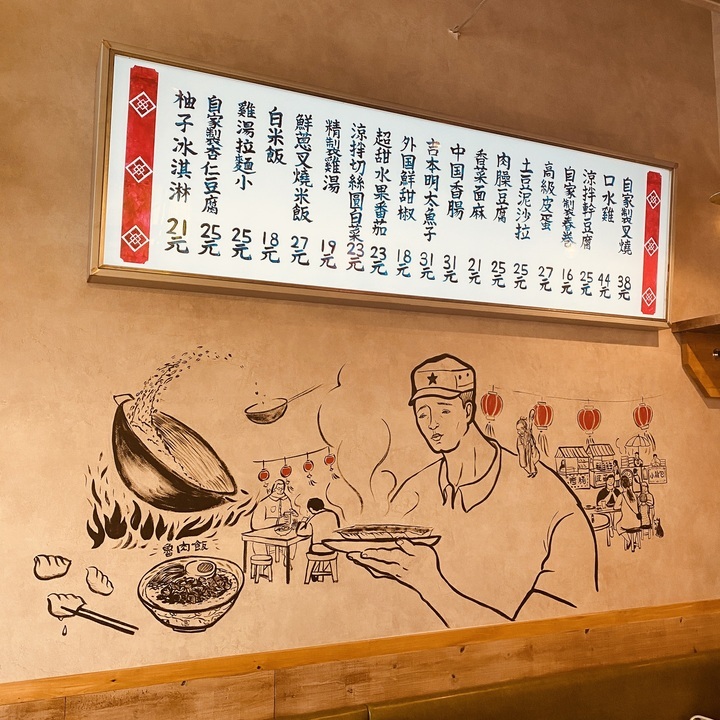 自家製叉燒 38元
口水雞 44元
涼拌幹豆腐 25元
自家製春卷 16元
高級皮蛋 27元
土豆泥沙拉 25元
肉臊豆腐 25元
香菜面麻 21元
中国香腸 31元
吉本明太魚子 31元
外国鮮甜椒 18元
超甜水果番茄 23元
涼拌切絲圓白菜 23元
精製雞湯 19元
鮮蔥叉燒米飯 27元
白米飯 18元
雞湯拉麵小 25元
自家製杏仁豆腐 25元
柚子冰淇淋 21元
魯肉飯